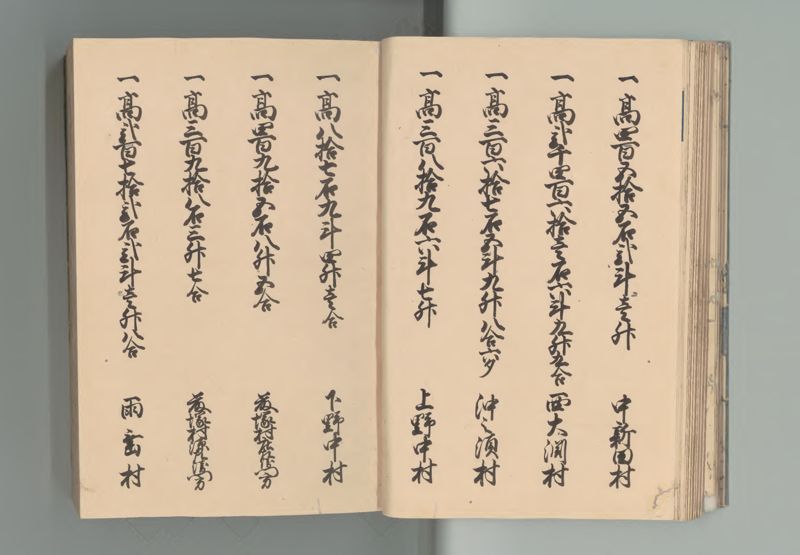 一高四百五拾五石弐斗壱升 中新田村
一高弐千四百六拾壱石六斗九升五合 西大渕村
一高三百六拾七石五斗九升八合六夕 沖之須村
一高三百八拾九石六斗七升 上野中村
一高八拾七石九斗四升壱合 下野中村
一高四百九拾五石八升五合
一高三百九拾八石三升七合
一高弐百七拾弐石弐斗壱升八合 雨垂村